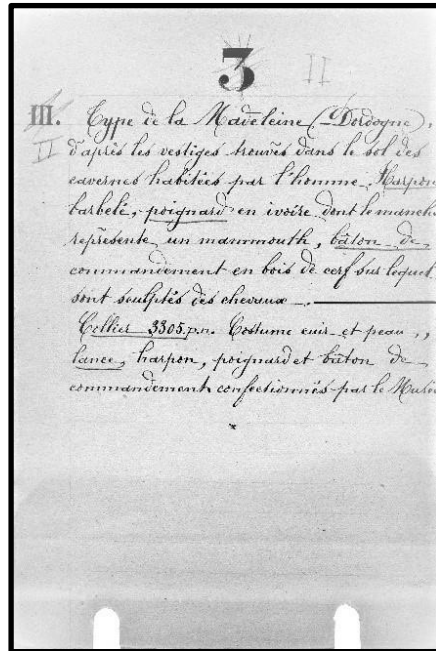 3 II
III. Type de la Madeleine (Dordogne),
II d'après les vestiges trouvés dans le sol des
cavernes habitées par l'homme. Harpon
barbelé, poignard en ivoire dont le manche
représente un mammouth, bâton de
commandement en bois de cerf sur lequel
sont sculptés des chevaux.
Collier 3305 p.n. Costume cuir et peau,
lance, harpon, poignard et bâton de
commandement confectionnés par le Musée